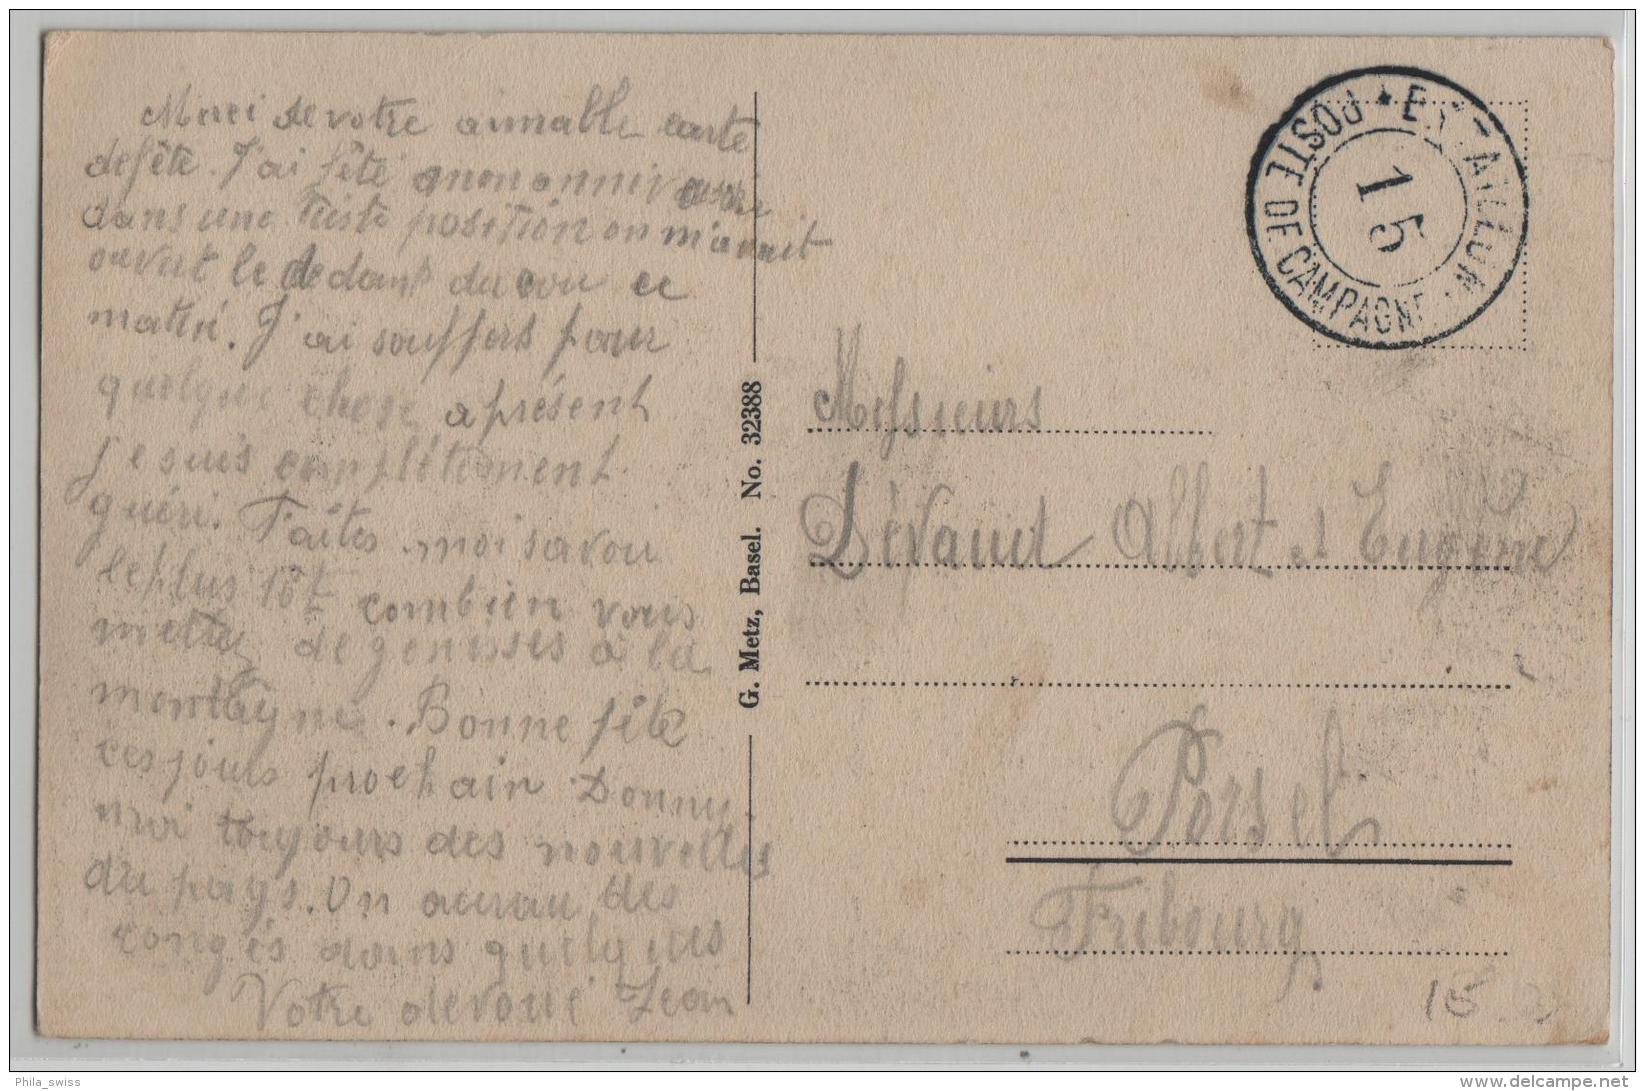 Merci de votre aimable carte
de fête. J'ai fêté mon annivairsaire
dans une triste position on m'avait
ouvert le dedant du cou ce
matin. J'ai souffers pour
quelque chose aprésent
je suis complêtement
guéri. Faîtes moi savoir
le plus tôt combien vous
mettez de genisses à la
montagne. Bonne fête
ces jours prochain. Donnez
moi toujours des nouvelles
du pays. On aurau des
congés dains quelques
Votre dévoué Jean
G. Metz, Basel. No. 32388
POSTE DE CAMPAGNE · BATAILLON
15
Messieurs
Dévaud Albert et Eugène
Porsel
Fribourg
15
Phila_swiss
www.delcampe.net